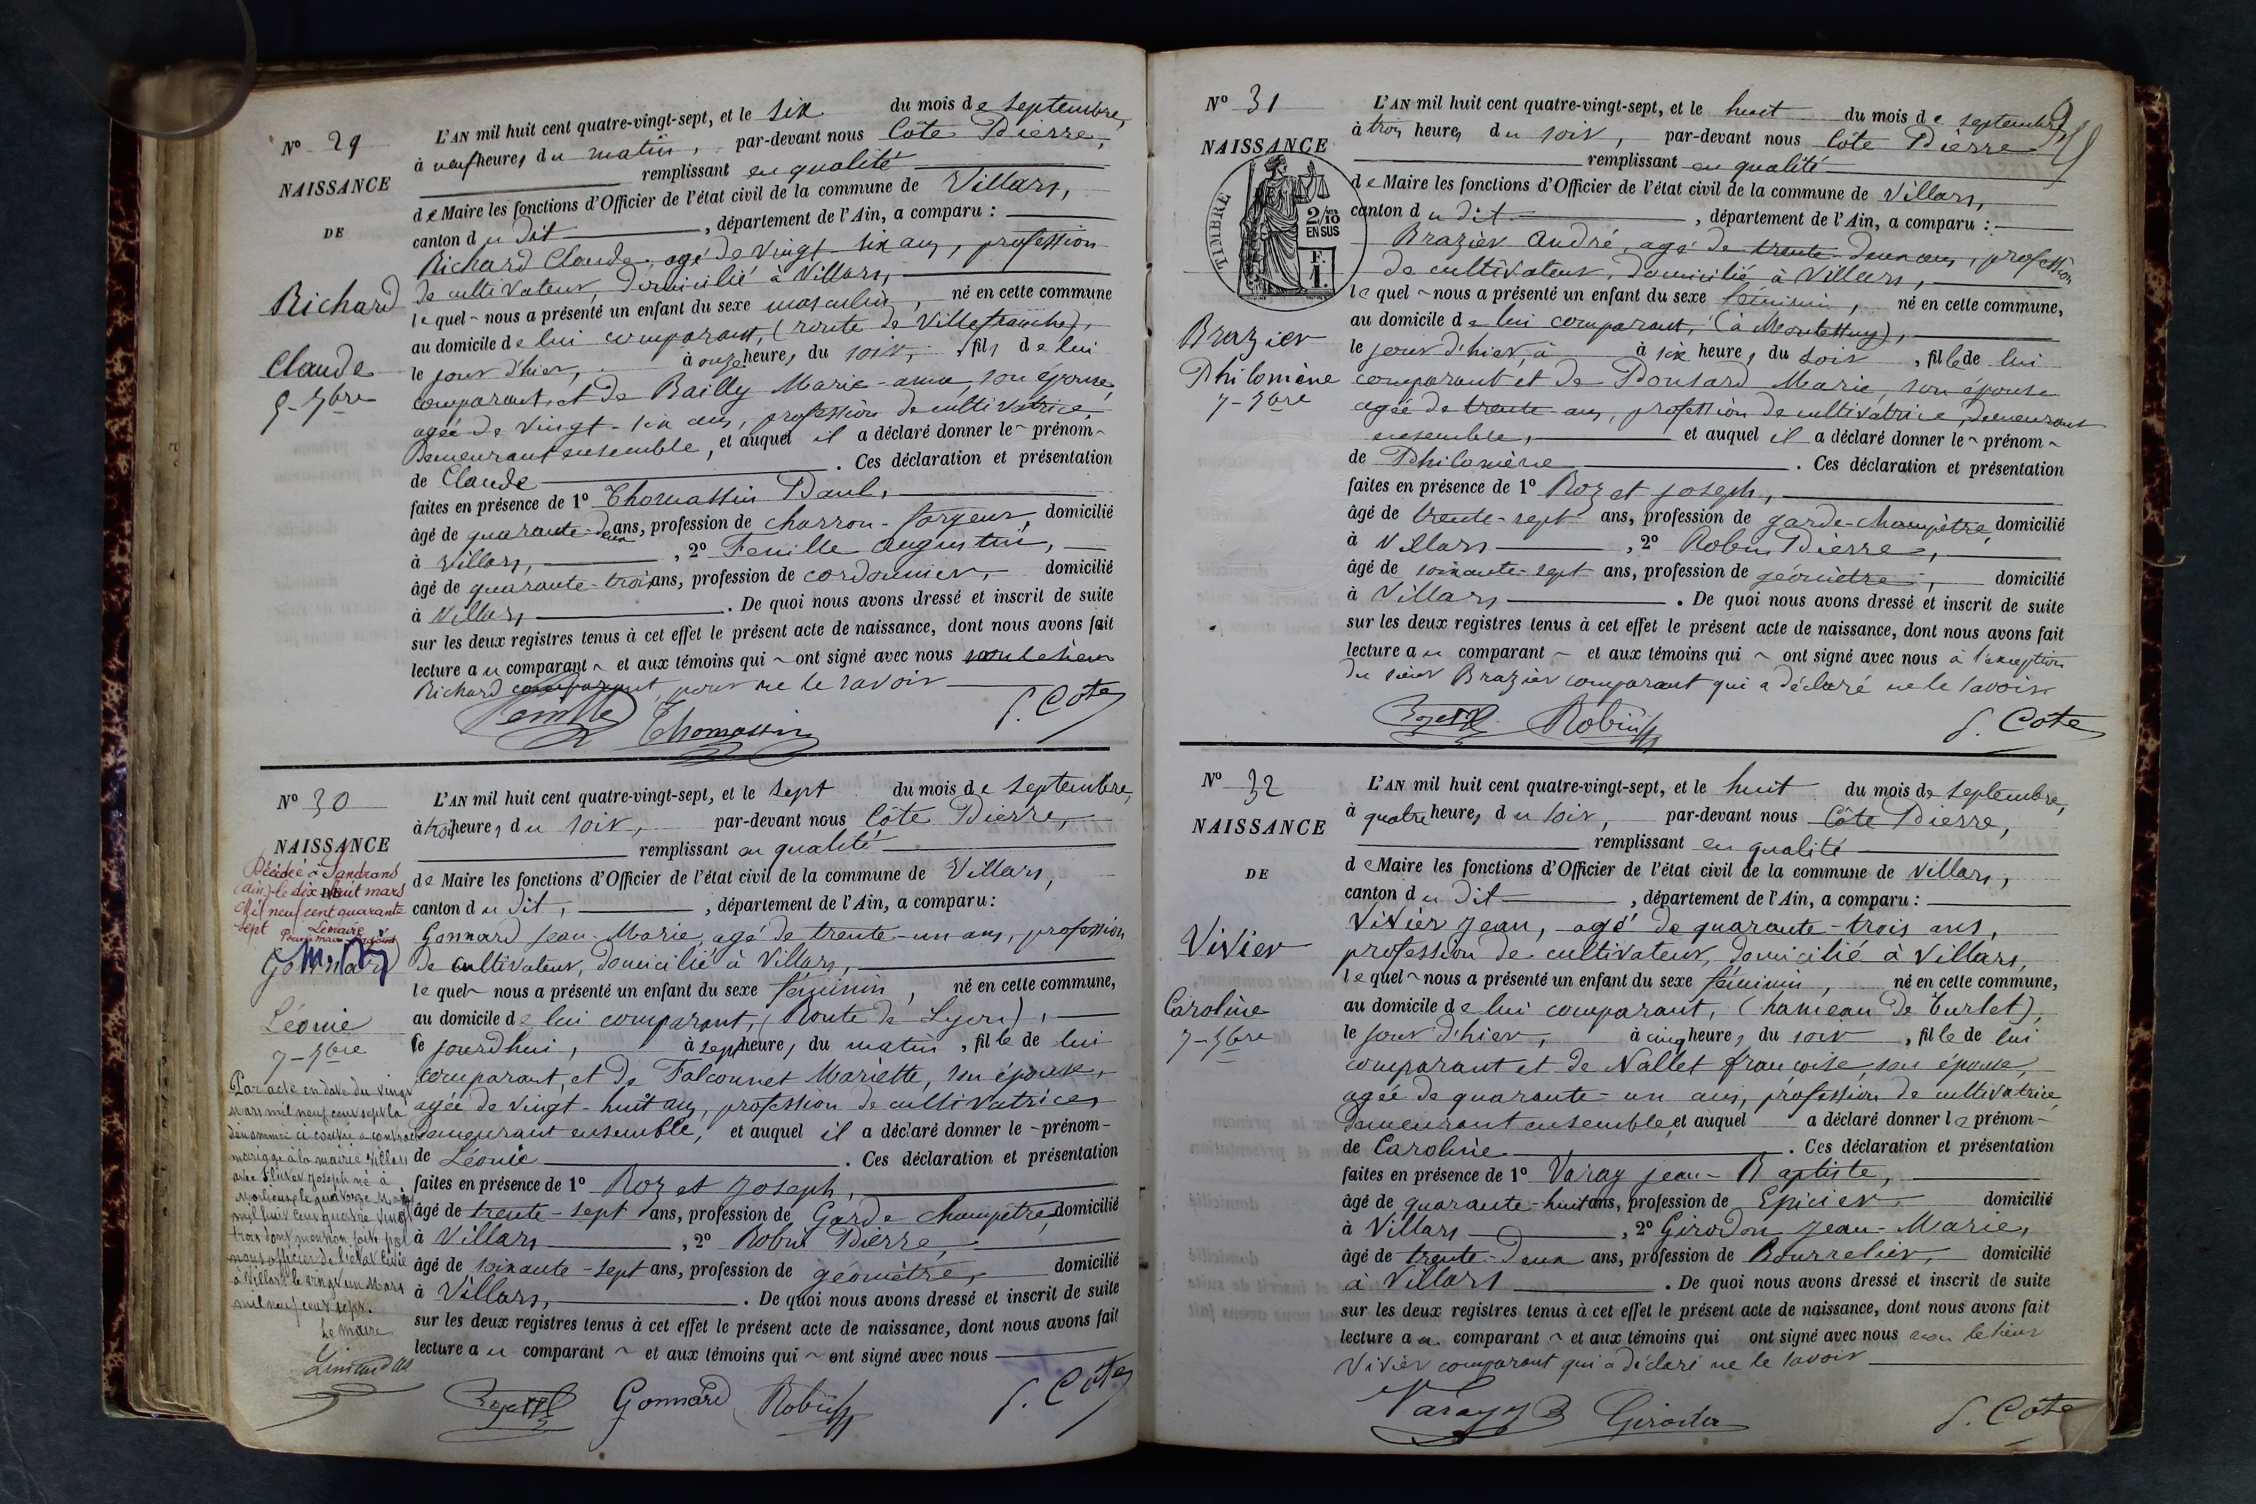 N° 29
NAISSANCE
DE
Richard
Claude
5 - 7bre
L'AN mil huit cent quatre-vingt-sept, et le six du mois de septembre,
à neuf heures du matin, par-devant nous Côte Pierre,
remplissant en qualité
de Maire les fonctions d'Officier de l'état civil de la commune de Villars,
canton du dit, département de l'Ain, a comparu :
Richard Claude, agé de vingt-six ans, profession
de cultivateur, domicilié à Villars,
lequel nous a présenté un enfant du sexe masculin, né en cette commune
au domicile de lui comparant, (route de Villefranche),
le jour d'hier, à onze heures du soir, fils de lui
comparant, et de Bailly Marie-, son épouse,
agée de vingt-six ans, profession de cultivatrice
Demeurant ensemble, et auquel il a déclaré donner le prénom
de Claude. Ces déclaration et présentation
faites en présence de 1° Thomassin Paul,
âgé de quarante-deux ans, profession de charron-forgeur, domicilié
à Villars, 2° Feuille Augustin,
âgé de quarante-trois ans, profession de cordonnier, domicilié
à Villars, . De quoi nous avons dressé et inscrit de suite
sur les deux registres tenus à cet effet le présent acte de naissance, dont nous avons fait
lecture au comparant et aux témoins qui ont signé avec nous
Richard comparant, pour ne le savoir
Feuille Thomassin P. Côte
N° 30
NAISSANCE
DE
Décédée à Sandrans
(Ain) le dix huit mars
Mil neuf cent quarante
sept Le Maire
Gonnard
Léonie
7 - 7bre
Par acte en date du vingt
mars mil neuf cent sept la
dénommée ci contre a contracté
mariage à la mairie Villars
avec Joseph né à
le quatorze Mars
mil huit cent quatre vingt
trois dont mention faite par
nous officier de l'état civil
à Villars le vingt un Mars
mil neuf cent sept.
Le maire
L'AN mil huit cent quatre-vingt-sept, et le sept du mois de septembre,
à trois heures du soir, par-devant nous Côte Pierre,
remplissant en qualité
de Maire les fonctions d'Officier de l'état civil de la commune de Villars,
canton du dit, département de l'Ain, a comparu :
Gonnard Jean-Marie, agé de trente-un ans, profession
de cultivateur, domicilié à Villars,
lequel nous a présenté un enfant du sexe féminin, né en cette commune,
au domicile de lui comparant, (Route de Lyon),
le jourd'hui, à sept heures du matin, fille de lui
comparant, et de Falconnet Mariette, son épouse,
agée de vingt-huit ans, profession de cultivatrice,
demeurant ensemble, et auquel il a déclaré donner le prénom
de Léonie. Ces déclaration et présentation
faites en présence de 1° Rozet Joseph,
âgé de trente-sept ans, profession de Garde champêtre, domicilié
à Villars, 2° Robin Pierre,
âgé de soixante-sept ans, profession de géomètre, domicilié
à Villars, . De quoi nous avons dressé et inscrit de suite
sur les deux registres tenus à cet effet le présent acte de naissance, dont nous avons fait
lecture au comparant et aux témoins qui ont signé avec nous
Rozet Gonnard Robin P. Côte
N° 31
NAISSANCE
TIMBRE
2/10 EN SUS
F. 1.
Brazier
Philomène
7 - 7bre
L'AN mil huit cent quatre-vingt-sept, et le huit du mois de septembre
à trois heures du soir, par-devant nous Côte Pierre
remplissant en qualité
de Maire les fonctions d'Officier de l'état civil de la commune de Villars,
canton du dit, département de l'Ain, a comparu :
Brazier André, agé de trente-deux ans, profession
de cultivateur, domicilié à Villars,
lequel nous a présenté un enfant du sexe féminin, né en cette commune,
au domicile de lui comparant,
le jour d'hier, à à six heures du soir, fille de lui
comparant et de Ponsard Marie, son épouse
agée de trente ans, profession de cultivatrice, demeurant
ensemble, et auquel il a déclaré donner le prénom
de Philomène. Ces déclaration et présentation
faites en présence de 1° Rozet Joseph,
âgé de trente-sept ans, profession de garde-champêtre, domicilié
à Villars, 2° Robin Pierre,
âgé de soixante-sept ans, profession de géomètre, domicilié
à Villars. De quoi nous avons dressé et inscrit de suite
sur les deux registres tenus à cet effet le présent acte de naissance, dont nous avons fait
lecture au comparant et aux témoins qui ont signé avec nous à l'exception
du sieur Brazier comparant qui a déclaré ne le savoir
Rozet Robin P. Côte
N° 32
NAISSANCE
DE
Vivier
Caroline
7 - 7bre
L'AN mil huit cent quatre-vingt-sept, et le huit du mois de septembre,
à quatre heures du soir, par-devant nous Côte Pierre,
remplissant en qualité
de Maire les fonctions d'Officier de l'état civil de la commune de Villars,
canton du dit, département de l'Ain, a comparu :
Vivier Jean, agé de quarante-trois ans,
profession de cultivateur, domicilié à Villars,
lequel nous a présenté un enfant du sexe féminin, né en cette commune,
au domicile de lui comparant, (hameau de Turlet),
le jour d'hier, à cinq heures du soir, fille de lui
comparant et de Nallet Françoise, son épouse,
agée de quarante-un ans, profession de cultivatrice,
Demeurant ensemble, et auquel a déclaré donner le prénom
de Caroline. Ces déclaration et présentation
faites en présence de 1° Varay Jean-Baptiste,
âgé de quarante-huit ans, profession de Epicier, domicilié
à Villars, 2° Girodon Jean-Marie,
âgé de trente-deux ans, profession de Bourrelier, domicilié
à Villars. De quoi nous avons dressé et inscrit de suite
sur les deux registres tenus à cet effet le présent acte de naissance, dont nous avons fait
lecture au comparant et aux témoins qui ont signé avec nous non le sieur
Vivier comparant qui a déclaré ne le savoir
Varay J B Girodon P. Côte